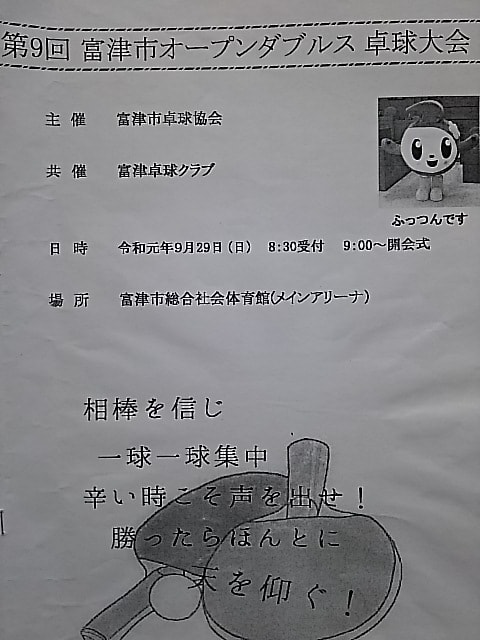 第9回 富津市オープンダブルス 卓球大会
主 催 富津市卓球協会
共 催 富津卓球クラブ
ふっつんです
日 時 令和元年9月29日(日) 8:30受付 9:00~開会式
場 所 富津市総合社会体育館(メインアリーナ)
相棒を信じ
一球一球集中
辛い時こそ声を出せ!
勝ったらほんとに
天を仰ぐ!